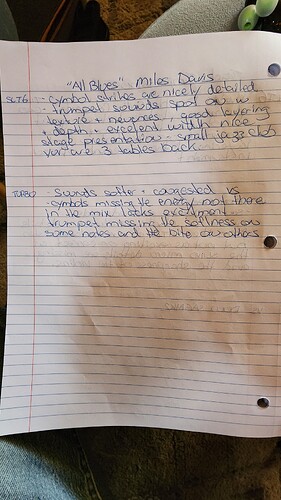 "All Blues" Miles Davis
SUT6 - cymbal strikes are nicely detailed
- trumpet sounds spot on w
texture + nevenes, good layering
+ depth - excelent width nice
stage presentation - small jazz club
your are 3 tables back
TURBO Sounds softer + congested vs
- cymbals missing the energy not there
in the mix lacks excitment
trumpet missing the softness on
some notes and the bite on others